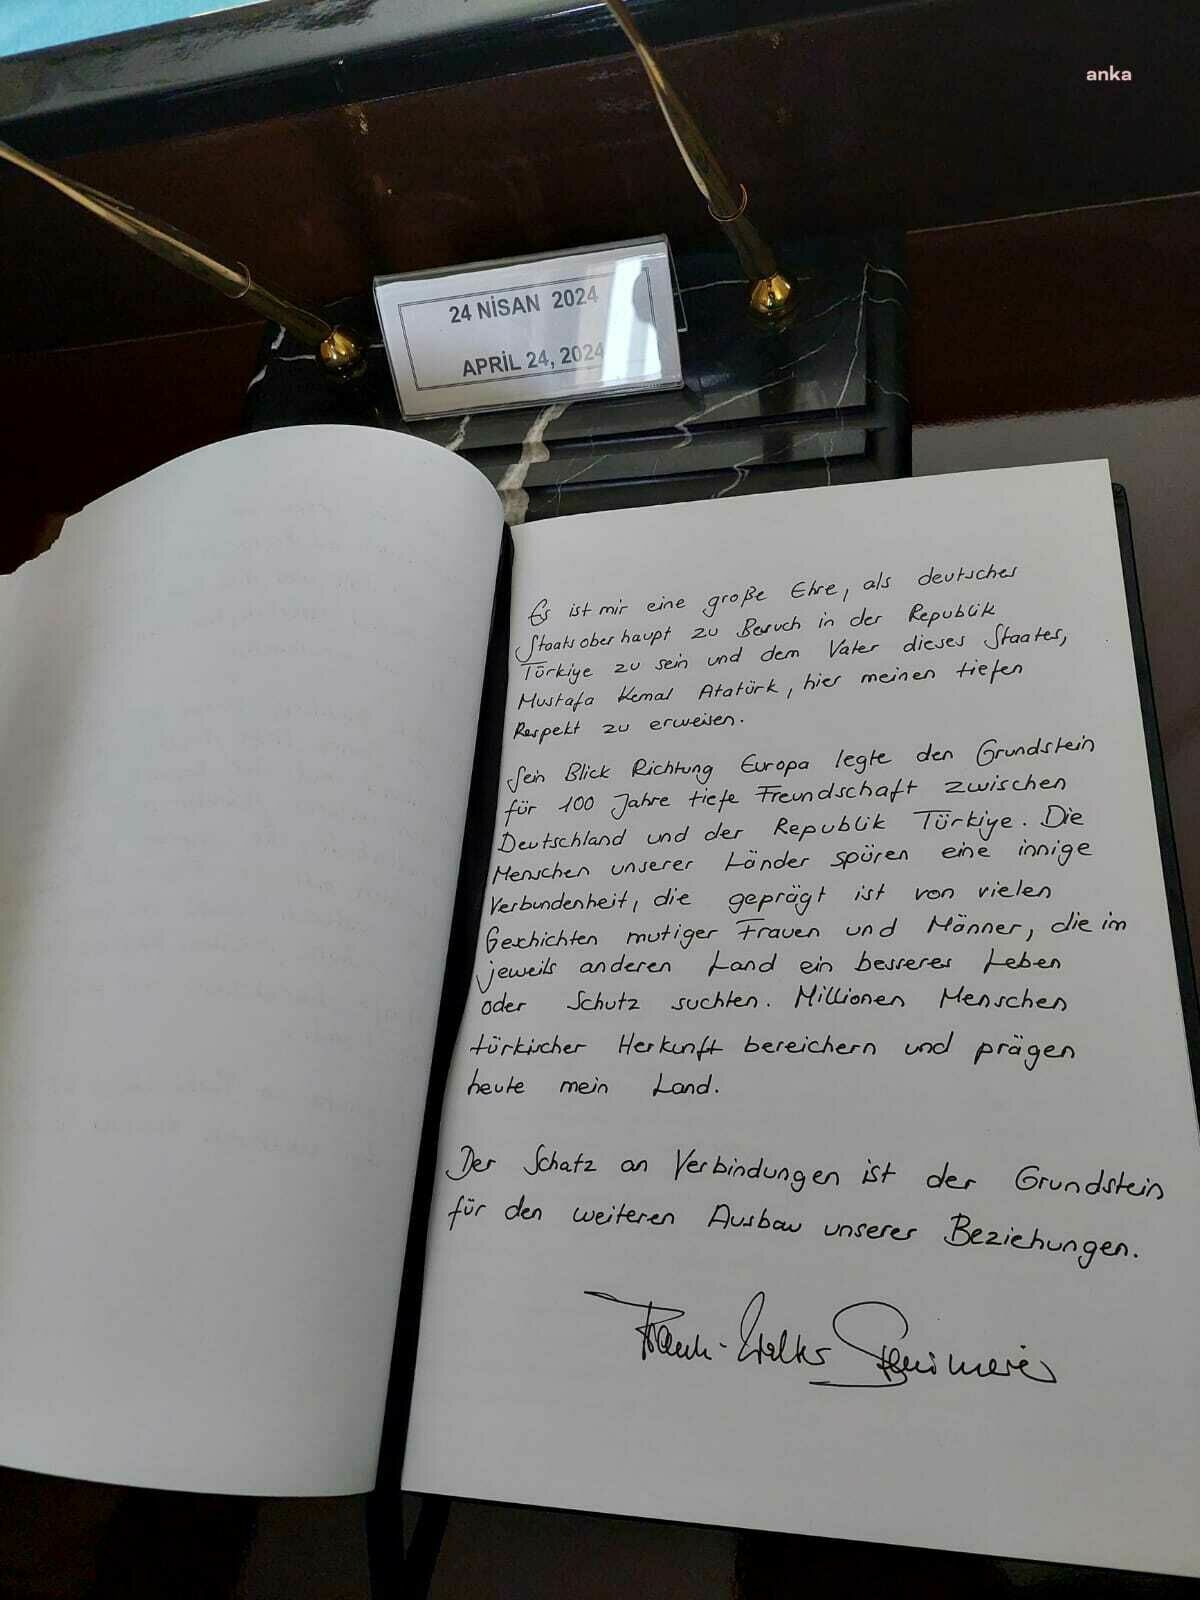 anka
24 NİSAN 2024
APRİL 24, 2024
Es ist mir eine große Ehre, als deutsches
Staatsoberhaupt zu Besuch in der Republik
Türkiye zu sein und dem Vater dieses Staates,
Mustafa Kemal Atatürk, hier meinen tiefen
Respekt zu erweisen.
Sein Blick Richtung Europa legte den Grundstein
für 100 Jahre tiefe Freundschaft zwischen
Deutschland und der Republik Türkiye. Die
Menschen unserer Länder spüren eine innige
Verbundenheit, die geprägt ist von vielen
Geschichten mutiger Frauen und Männer, die im
jeweils anderen Land ein besseres Leben
oder Schutz suchten. Millionen Menschen
türkischer Herkunft bereichern und prägen
heute mein Land.
Der Schatz an Verbindungen ist der Grundstein
für den weiteren Ausbau unserer Beziehungen.
Frank-Walter Steinmeier